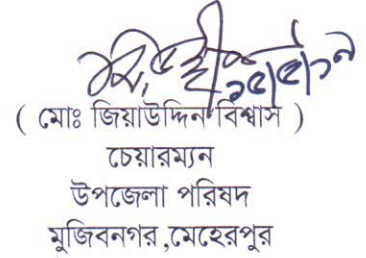 ১৫/৫/১৯
( মোঃ জিয়াউদ্দিন বিশ্বাস )
চেয়ারম্যন
উপজেলা পরিষদ
মুজিবনগর ,মেহেরপুর